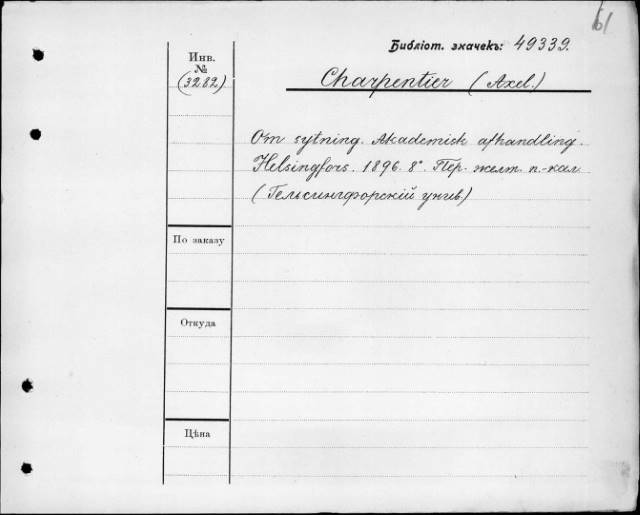 61
Библіот. значекъ: 49339.
Инв.
№
(3282)
Charpentier (Axel.)
Om sytning. Akademisk afhandling.
Helsingfors. 1896. 8°. Пер. желт. п.-кал.
(Гельсингфорскій унив.)
По заказу
Откуда
Цѣна